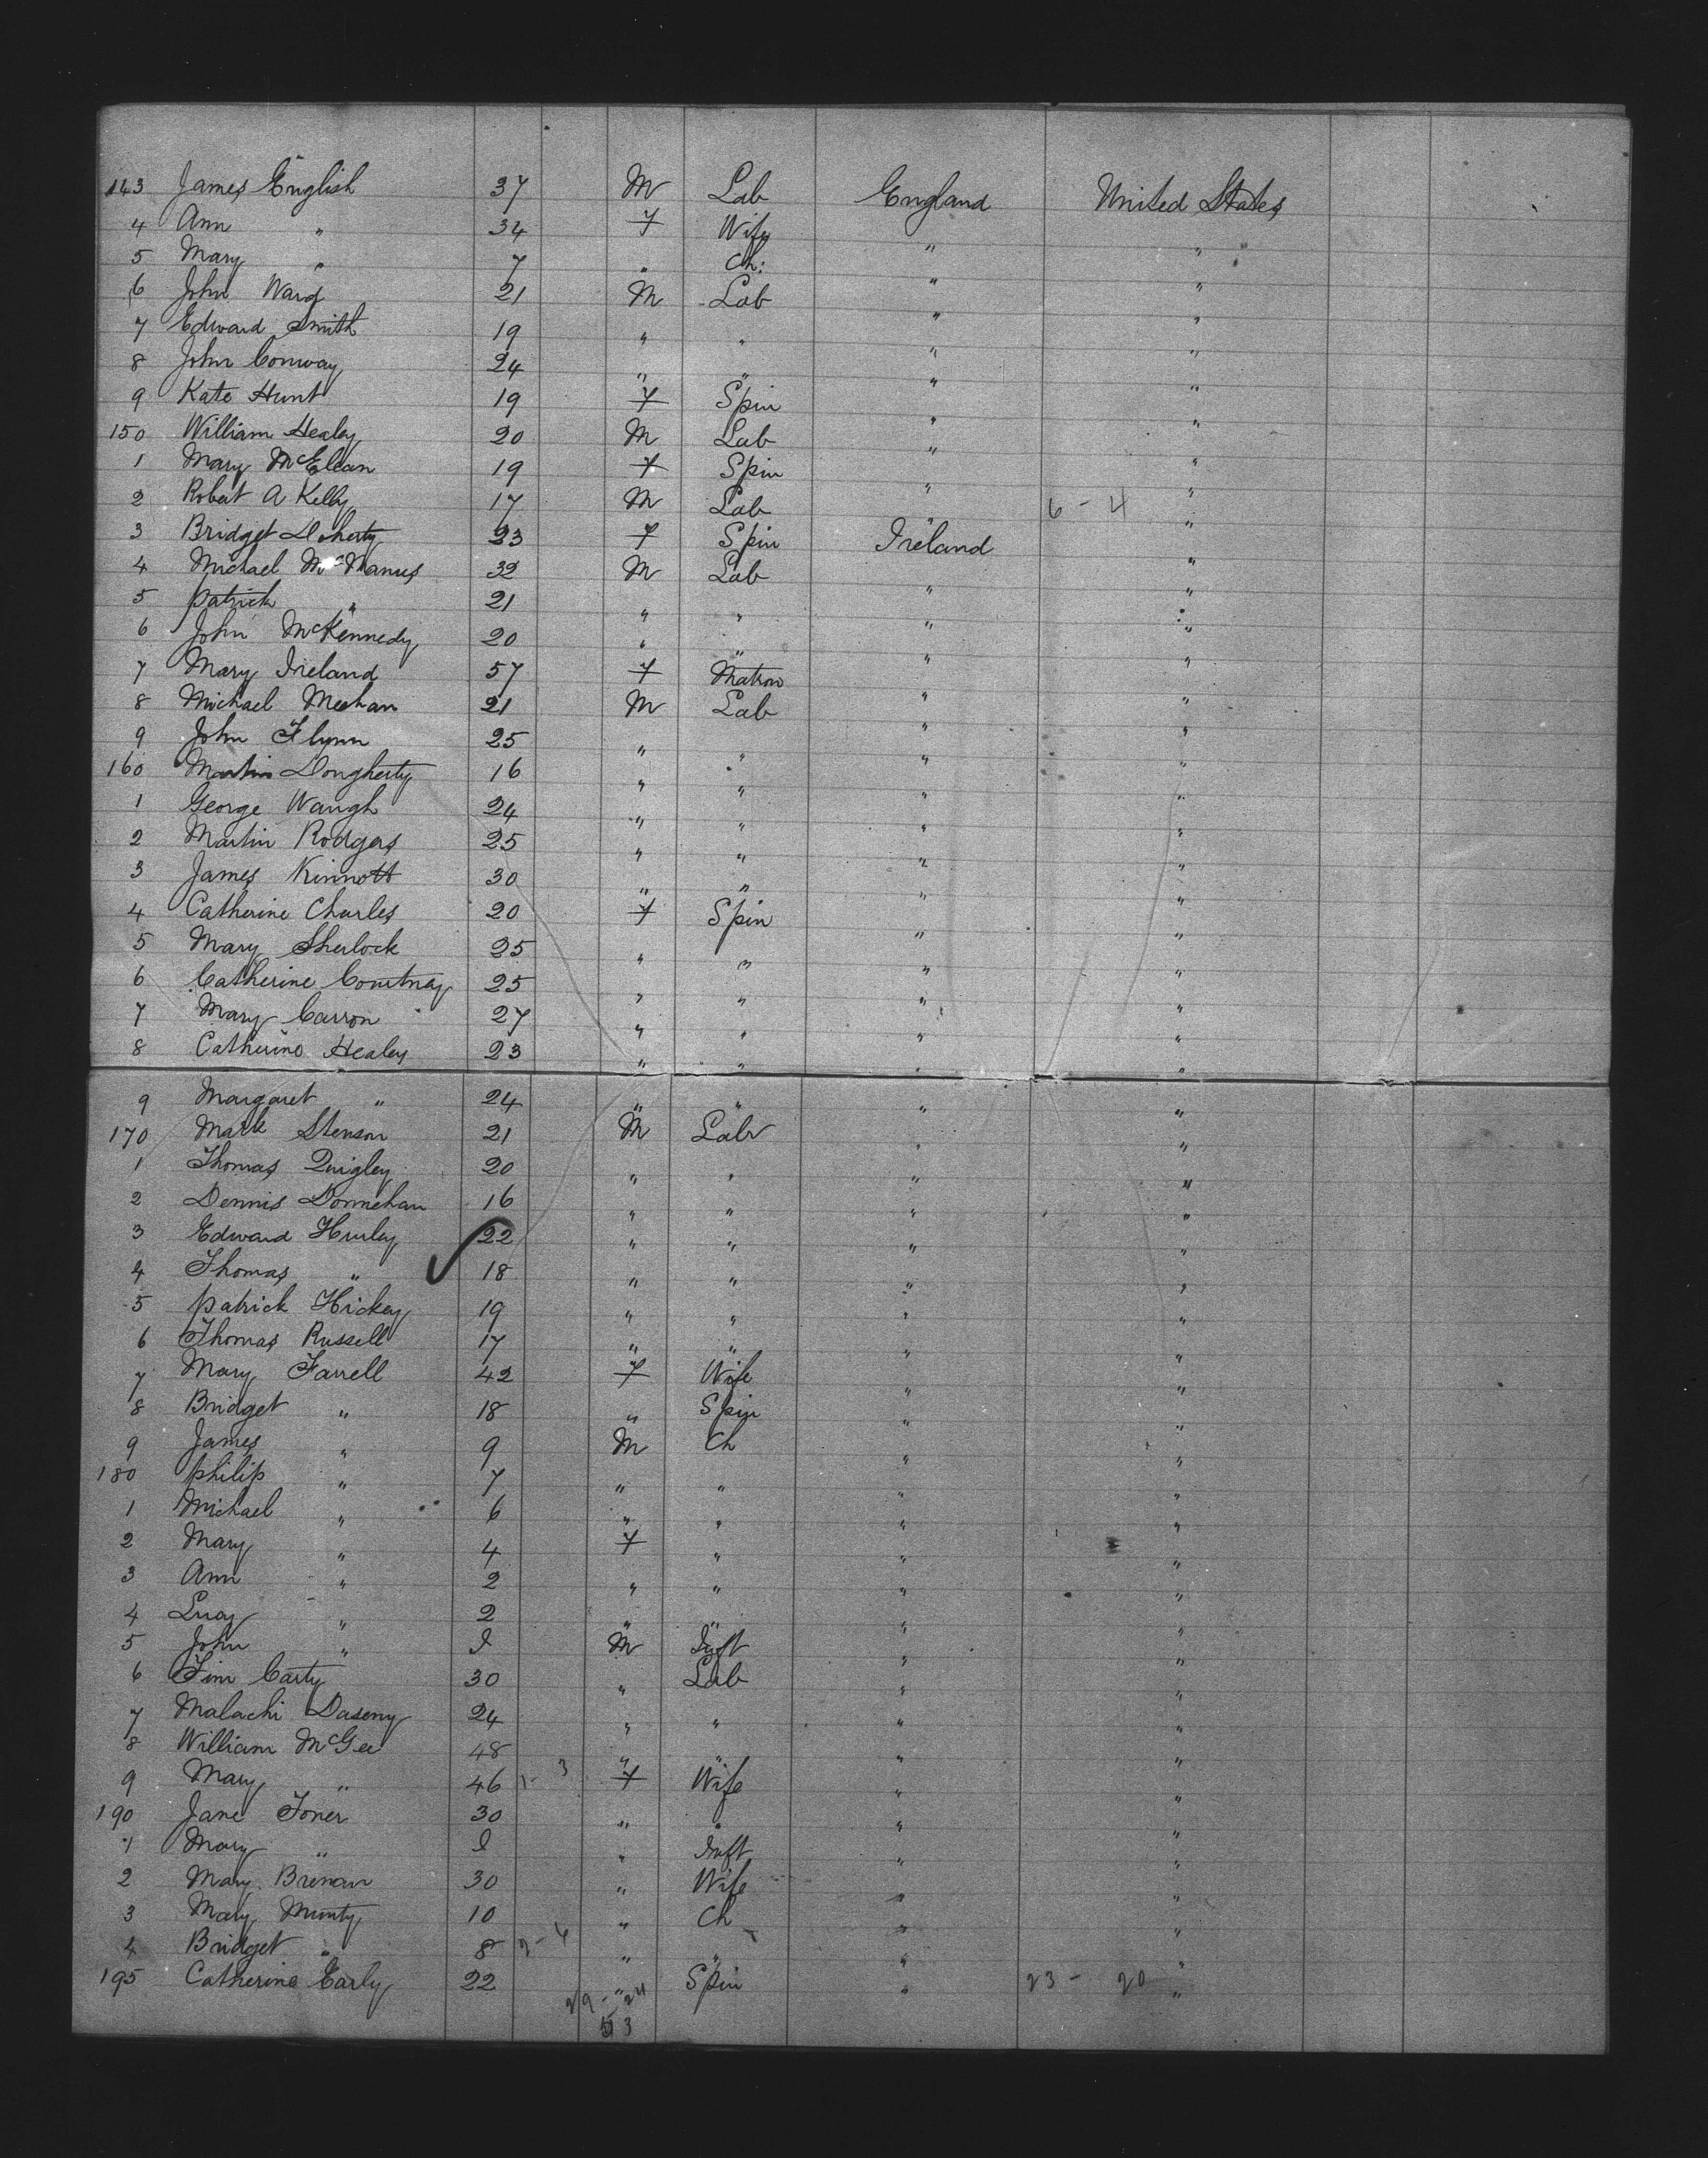 143 James English 37 M Lab England United States
4 Ann " 34 F Wife " "
5 Mary " 7 " Ch: " "
6 John Ward 21 M Lab " "
7 Edward Smith 19 " " " "
8 John Conway 24 " " " "
9 Kate Hunt 19 F Spin " "
150 William Healey 20 M Lab " "
1 Mary 19 F Spin " "
2 Robert A Kelly 17 M Lab " 6 - 4 "
3 Bridget Doherty 23 F Spin Ireland "
4 Michael McManus 32 M Lab " "
5 Patrick " 21 " " " "
6 John McKennedy 20 " " " "
7 Mary Ireland 57 F Matron " "
8 Michael Meehan 21 M Lab " "
9 John Flynn 25 " " " "
160 Martin Dougherty 16 " " " "
1 George Waugh 24 " " " "
2 Martin Rodgers 25 " " " "
3 James Kinnott 30 " " " "
4 Catherine Charles 20 F Spin " "
5 Mary Sherlock 25 " " " "
6 Catherine Courtney 25 " " " "
7 Mary Carron 27 " " " "
8 Catherine Healey 23 " " " "
9 Margaret " 24 " " " "
170 Mark Stenson 21 M Lab " "
1 Thomas Quigley 20 " " " "
2 Dennis Donnehan 16 " " " "
3 Edward Hurley 22 " " " "
4 Thomas " 18 " " " "
5 Patrick Hickey 19 " " " "
6 Thomas Russell 17 " " " "
7 Mary Farrell 42 F Wife " "
8 Bridget " 18 " Spin " "
9 James " 9 M Ch " "
180 Philip " 7 " " " "
1 Michael " 6 " " " "
2 Mary " 4 F " " "
3 Ann " 2 " " " "
4 Lucy " 2 " " " "
5 John " I M Inft " "
6 Tim Carty 30 " Lab " "
7 Malachi 24 " " " "
8 William McGee 48 " " " "
9 Mary " 46 1 - 3 F Wife " "
190 Jane Toner 30 " " " "
1 Mary " I " Inft " "
2 Mary Brenan 30 " Wife " "
3 Mary Munty 10 " Ch " "
4 Bridget " 8 2 - 6 " " " "
195 Catherine Early 22 " Spin " 23 - 20 "
29 - 24
53